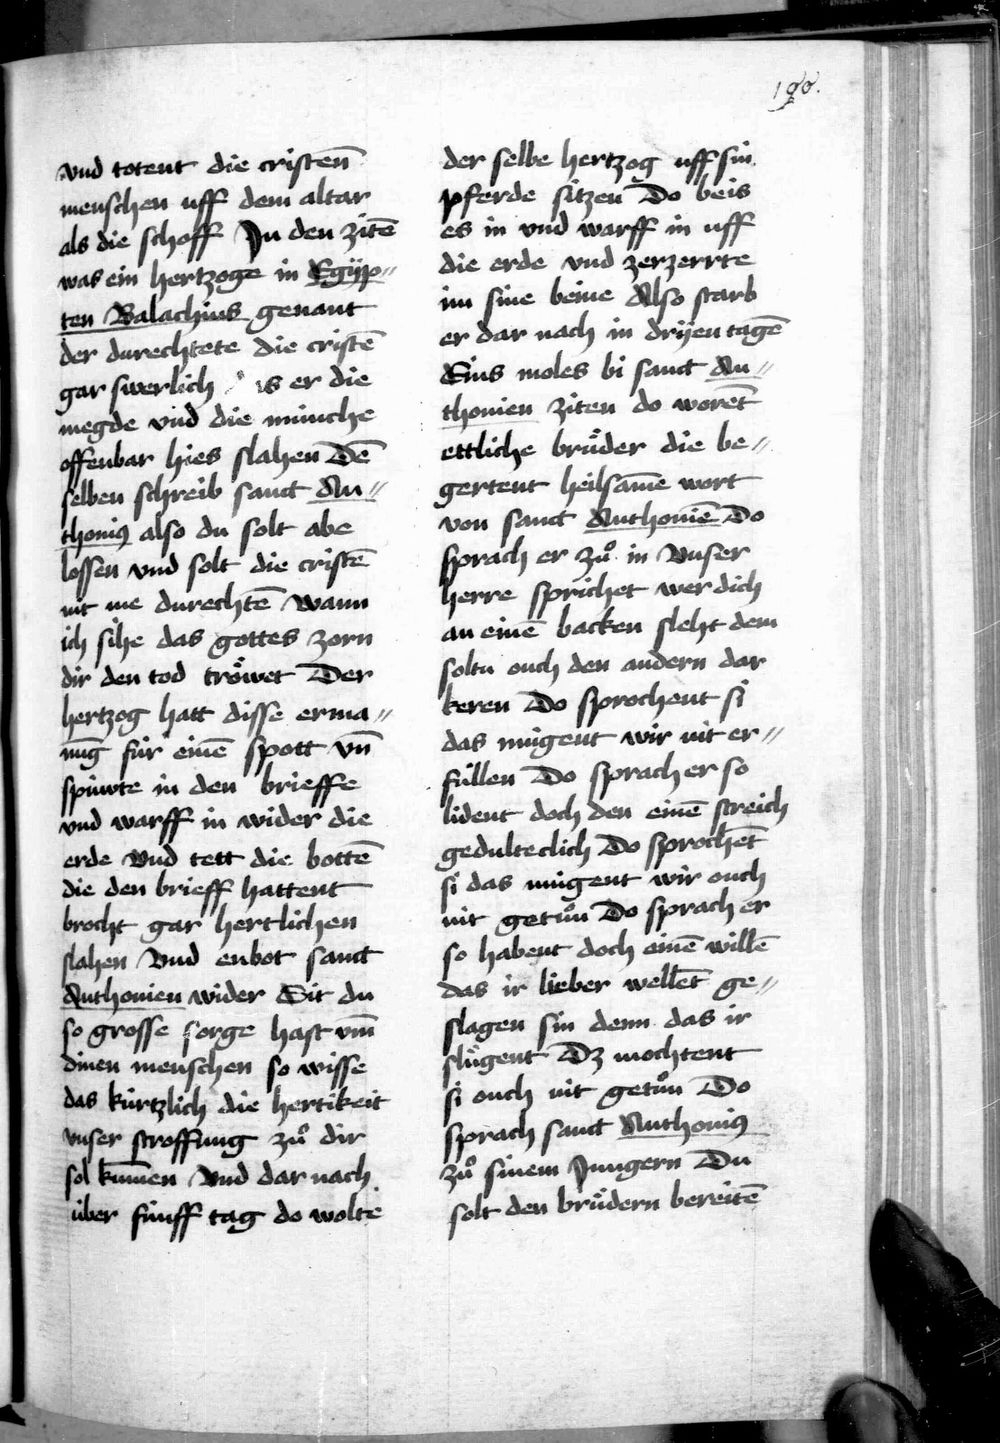 190.
vnd totent die cristen̄
menschen uff dem altar
als die schoff Jn den zitē
was ein hertzoge in Egÿp〃
ten Balachius genant
der durechtete die cristē
gar swerlich er die
megde vnd die münche
offenbar hies slahen Dē
selben schreib sanct An〃
thonius also du solt abe
lossen vnd solt die cristē
nit me durechtē Wann
ich sihe das gottes zorn
dir den tod tröwet Der
hertzog hatt disse erma〃
nūg für einē spott vn̄
spüwte in den brieffe
vnd warff in wider die
erde Vnd tett die bottē
die den brieff hattent
brocht gar hertlichen
slahen Vnd enbot sanct
Anthonien wider Sit du
so grosse sorge hast vm̄
dinen menschen so wisse
das kürtzlich die hertikeit
vnser stroffung zů dir
sol kum̄en Vnd dar nach
über fünff tag do wolte
der selbe hertzog uff sin
pferde sitzen Do beis
es in vnd warff in uff
die erde vnd zerzerrte
im sine beine Also starb
er dar nach in drÿen tagē
Eins moles bi sanct An〃
thonien ziten do worēt
ettliche brüder die be〃
gertent heilsamē wort
von sanct Anthoniē Do
sprach er zů in Vnser
herre sprichet wer dich
an einē backen sleht dem
soltu ouch den andern dar
keren Do sprochent si
das mügent wir nit er〃
füllen Do sprach er so
lident doch den einē streich
gedulteclich Do sprochēt
si das mügent wir ouch
nit getůn Do sprach er
so habent doch einē willē
das ir lieber wellēt ge〃
slagen sin denn das ir
slügent Dz mochtent
si ouch nit getůn Do
sprach sanct Anthonius
zů sinem Jungern Du
solt den brüdern bereitē